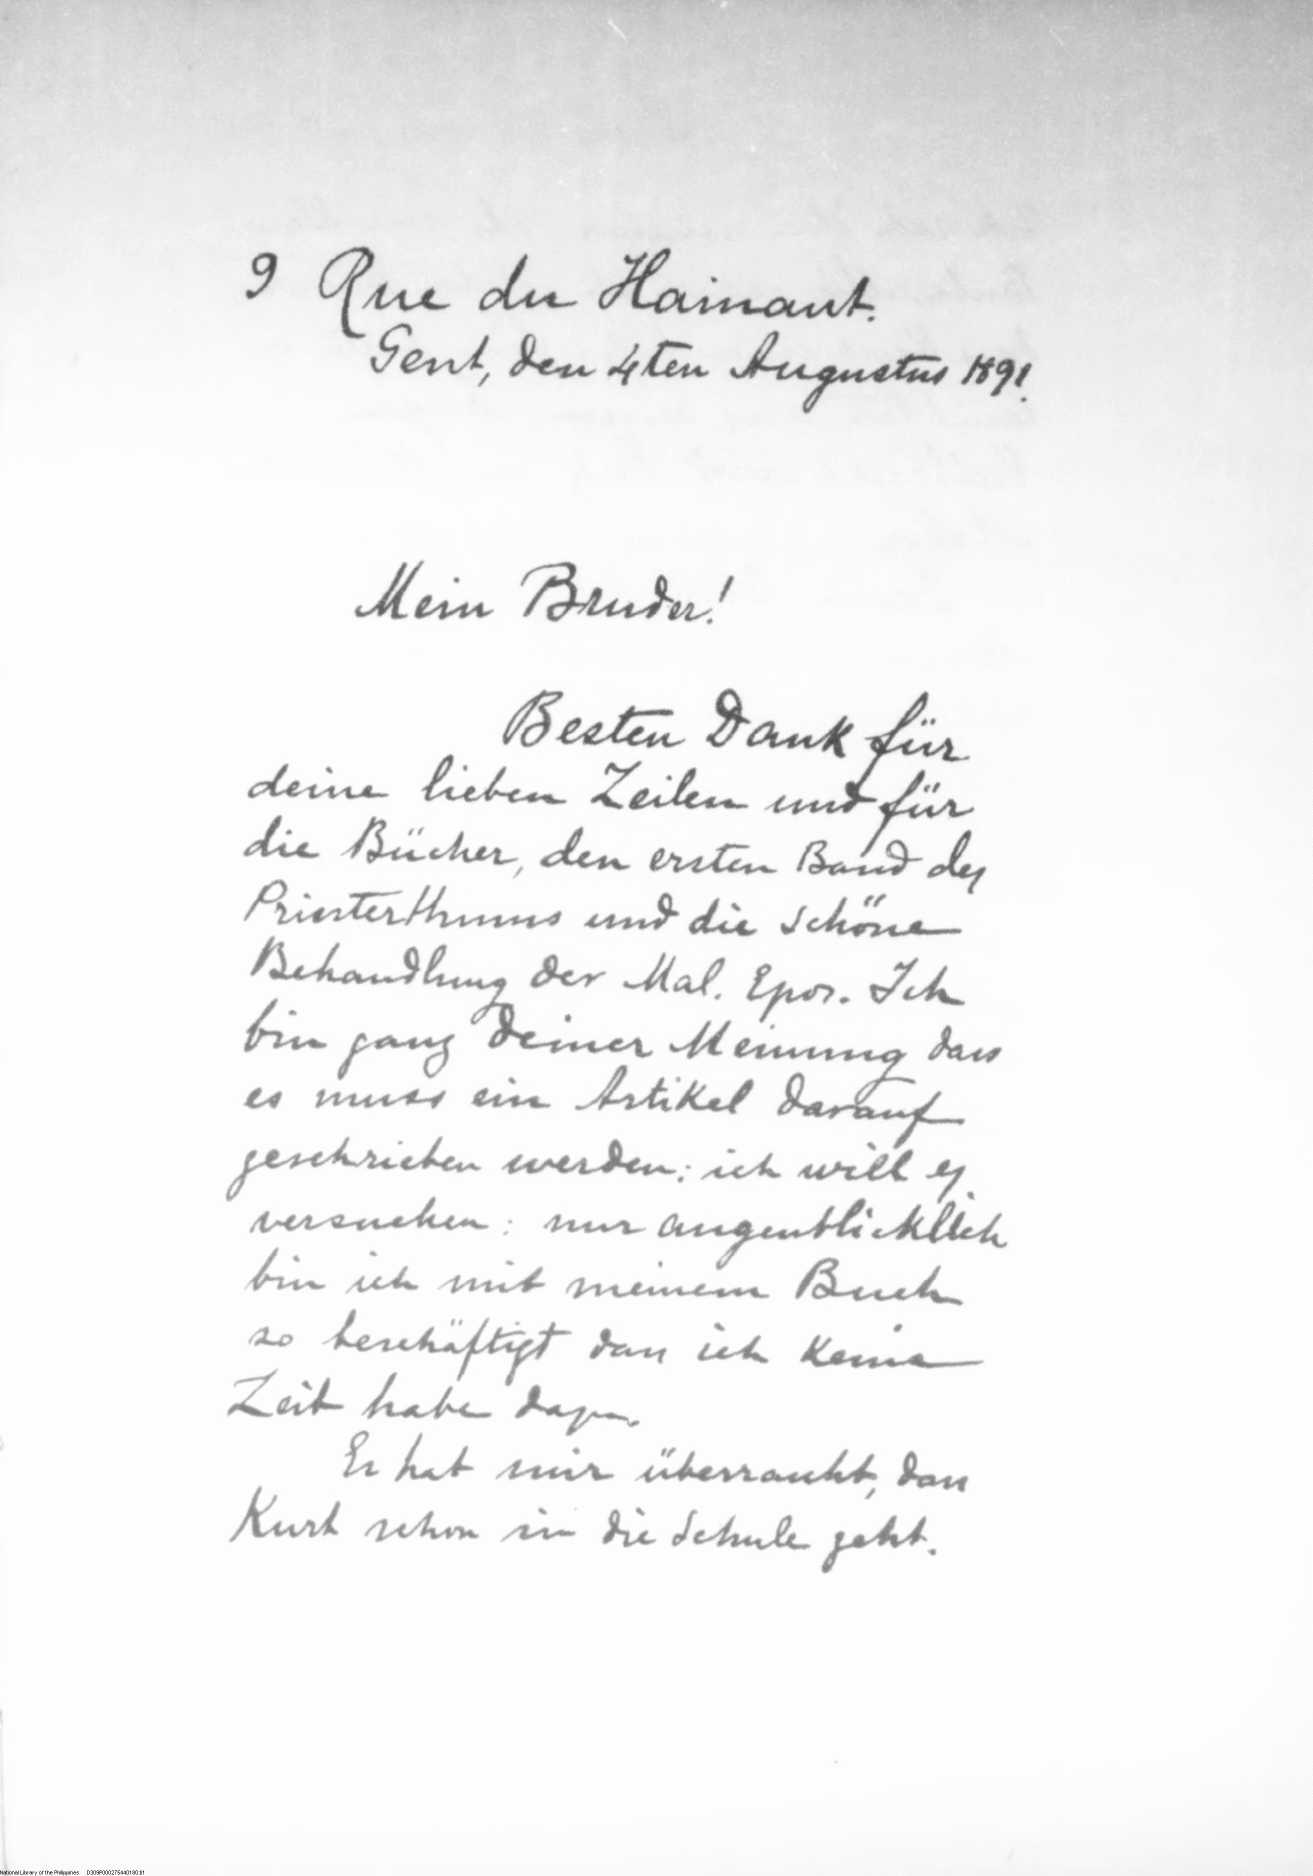 9 Rue du Hainaut.
Gent, den 4ten Augustus 1891.
Mein Bruder!
Besten Dank für
deine lieben Zeilen und für
die Bücher, den ersten Band des
Priesterthums und die schöne
Behandlung der Mal. Epos. Ich
bin ganz deiner Meinung dass
es muss ein Artikel darauf
geschrieben werden; ich will es
versuchen: nur augenblicklich
bin ich mit meinem Buch
so beschäftigt dass ich keine
Zeit habe dazu.
Es hat mir überrascht, dass
Kurt schon in die Schule geht.
National Library of the Philippines